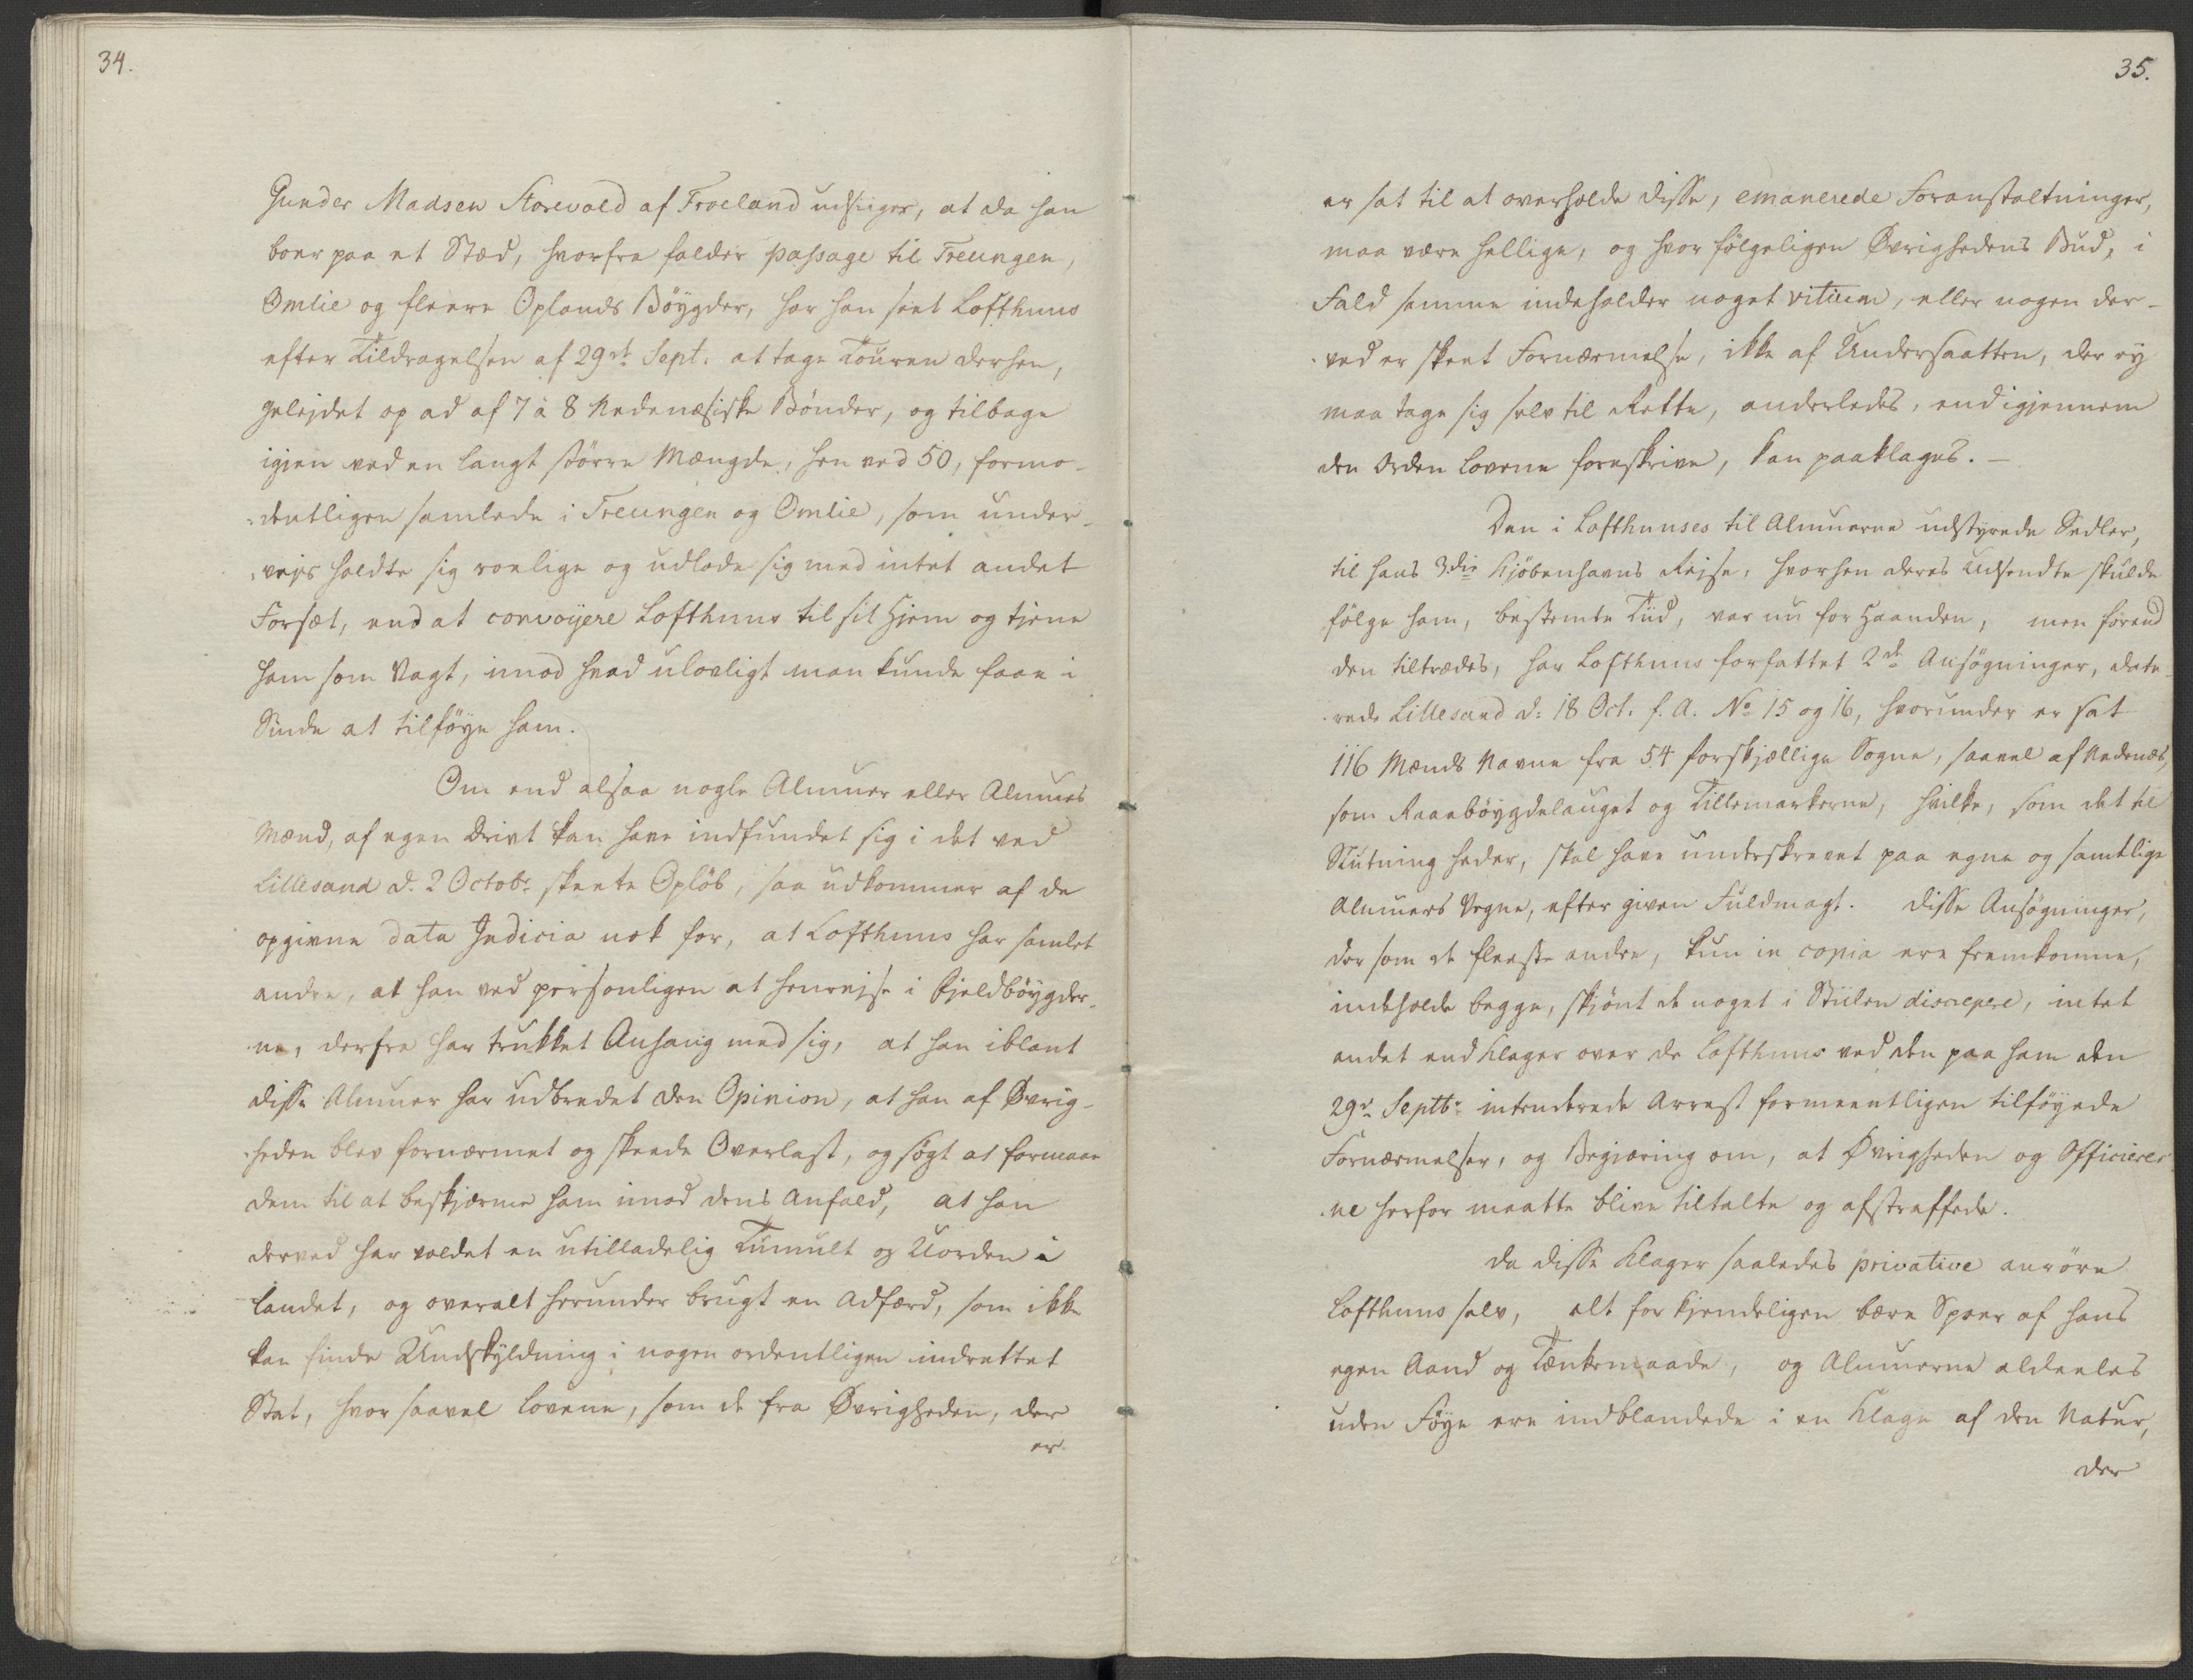 34.
Gunder Madsen Storevold af Froeland udsiiger, at da han
boer paa et Stæd, hvorfra falder passage til Treungen,
Omlie og fleere Oplands Böygder, har han seet Lofthuus
efter Tildragelsen af 29de Sept. at tage Touren derhen,
geleidet op ad af 7 à 8 Nedenæsiske Bönder, og tilbage
igjen ved en langt större Mængde, hen ved 50, formo-
-dentligen samlede i Treungen og Omlie, som under-
-vejs holdte sig roelige og udlode sig med intet andet
Forsæt, end at convoyere Lofthuus til sit Hjem og tjene
ham som Vagt, imod hvad ulovligt man kunde faae i
Sinde at tilföye ham.
Om end altsaa nogle Almuer eller Almues
Mænd, af egen Drivt kan have indfundet sig i det ved
Lillesand d. 2 Octobr. skeete Oplöb, saa udkommer af de
opgivne data Indicia nok for, at Lofthuus har samlet
andre, at han ved personligen at henrejse i Fjeldböygder-
-ne, derfra har trukket Anhang med sig, at han iblant
disse Almuer har udbredet den Opinion, at han af Øvrig-
-heden blev fornærmet og skeede Overlast, og sögt at formaae
dem til at beskjærme ham imod dens Anfald, at han
derved har voldet en utilladelig Tumult og Uorden i
Landet, og overalt herunder brugt en Adfærd, som ikke
kan finde Undskyldning i nogen ordentligen indrettet
Stat, hvor saavel Lovene, som de fra Øvrigheden, der
er
35.
er sat til at overholde disse, emanerede Foranstaltninger,
maa være hellige, og hvor fölgeligen Øvrighedens Bud, i
Fald samme indeholder noget vitium, eller nogen der-
-ved er skeet Fornærmelse, ikke af Undersaatten, der ey
maa tage sig selv til Rette, anderledes, end igjennem
den Orden Lovene foreskrive, kan paaklages. —
Den i Lofthuuses til Almuerne udstyrede Sedler,
til hans 3die Kjöbenhavns Rejse, hvorhen deres Udsendte skulde
fölge ham, bestemte Tiid, var nu for Haanden, men förend
den tiltrædes, har Lofthuus forfattet 2de Ansögninger, date-
-rede Lillesand d: 18 Oct. f. A. No 15 og 16, hvorunder er sat
116 Mænds Navne fra 54 forskjællige Sogne, saavel af Nedenæs,
som Raaeböygdelauget og Tillemarkerne, hvilke, som det til
Slutning heder, skal have underskrevet paa egne og samtlige
Almuers Vegne, efter given Fuldmagt. Disse Ansögninger,
der som de fleeste andre, kun in copia ere fremkomne,
indeholde begge, skjönt de noget i Stiilen discrepere, intet
andet end Klager over de Lofthuus ved den paa ham den
29de Septbr. intenderede Arrest formeentligen tilföyede
Fornærmelser, og Begjæring om, at Øvrigheden og Officierer-
-ne herfor maatte blive tiltalte og afstraffede.
Da disse Klager saaledes privative anröre
Lofthuus selv, alt for kjendeligen bære Spoer af hans
egen Aand og Tænkemaade, og Almuerne aldeeles
uden Föye ere indblandede i en Klage af den Natur,
der